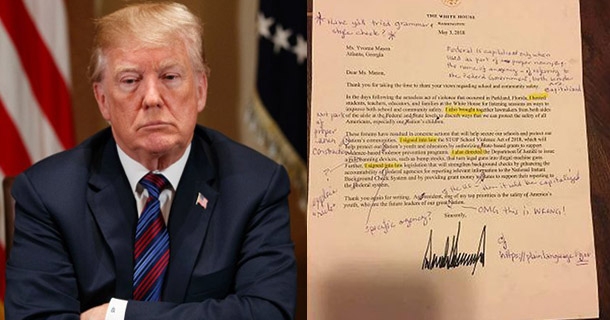 * Have y'all tried grammar &
style check?*
THE WHITE HOUSE
WASHINGTON
May 3, 2018
Ms. Yvonne Mason
Atlanta, Georgia
Federal is capitalized only when
used as part of a proper noun,
the name of an agency
the Federal Government, both
capitalized
Dear Ms. Mason,
Thank you for taking the time to share your views regarding school and community safety.
In the days following the senseless act of violence that occurred in Parkland, Florida, I hosted
students, teachers, educators, and families at the White House for listening sessions on ways to
improve both school and community safety. I also brought together lawmakers from both sides
of the aisle at the Federal and State levels to discuss ways that we can protect the safety of all
Americans, especially one Nation's children.
Not part
of
proper
These forums have resulted in concrete actions that will help secure our schools and protect our
Nation's I signed into law the STOP School Violence Act of 2018, which will
help protect our Nation's youth and educators by authorizing State-based grants to support
evidence-based violence prevention programs. I also directed the Department of Justice to issue
a devices, such as bump stocks, that turn legal guns into illegal machine guns.
Further, I signed into law legislation that will strengthen background checks by enhancing the
accountability of Federal agencies for reporting relevant information to the National Instant
Background Check System and by providing grant money to States to support their reporting to
the Federal system.
Thank you again for writing. As President, of my top priorities is the safety of America's
youth, who are the future leaders of our great Nation.
Sincerely,
specific agency?
OMG this is WRONG!
https://plainlanguage.gov